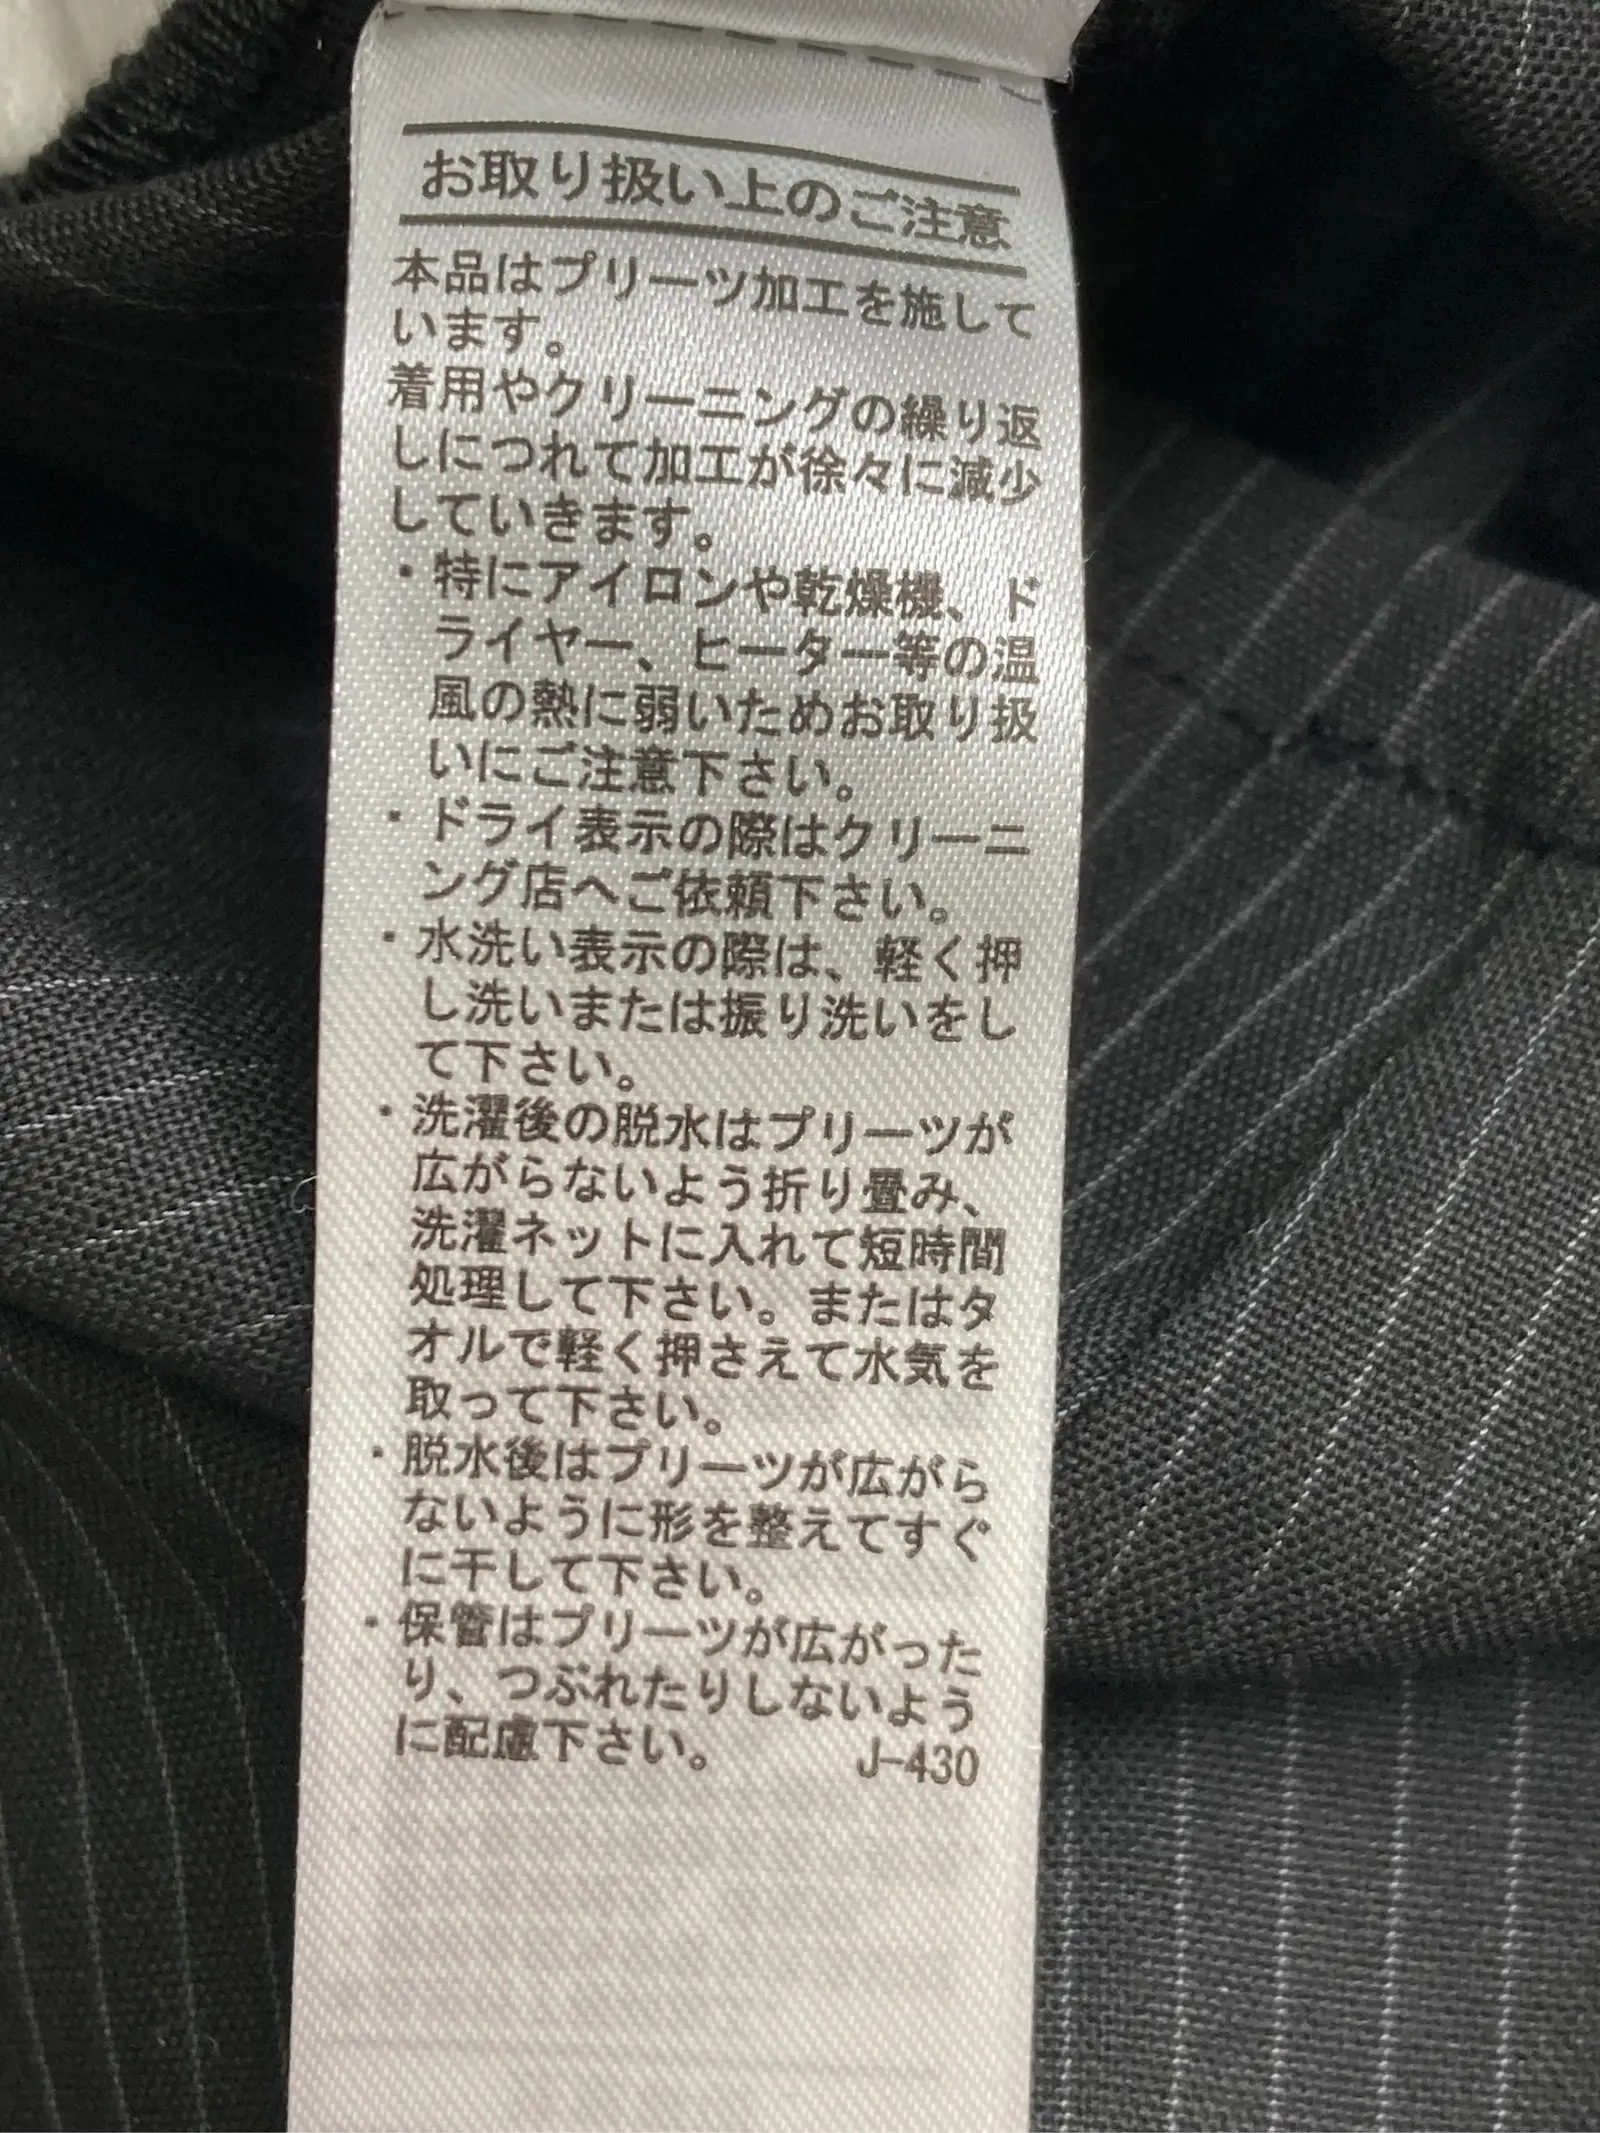 お取り扱い上のご注意
本品はプリーツ加工を施して
います。
着用やクリーニングの繰り返
しにつれて加工が徐々に減少
していきます。
・特にアイロンや乾燥機、ド
ライヤー、ヒーター等の温
風の熱に弱いためお取り扱
いにご注意下さい。
・ドライ表示の際はクリーニ
ング店へご依頼下さい。
・水洗い表示の際は、軽く押
し洗いまたは振り洗いをし
て下さい。
・洗濯後の脱水はプリーツが
広がらないよう折り畳み、
洗濯ネットに入れて短時間
処理して下さい。またはタ
オルで軽く押さえて水気を
取って下さい。
・脱水後はプリーツが広がら
ないように形を整えてすぐ
に干して下さい。
・保管はプリーツが広がった
り、つぶれたりしないよう
に配慮下さい。 J-430